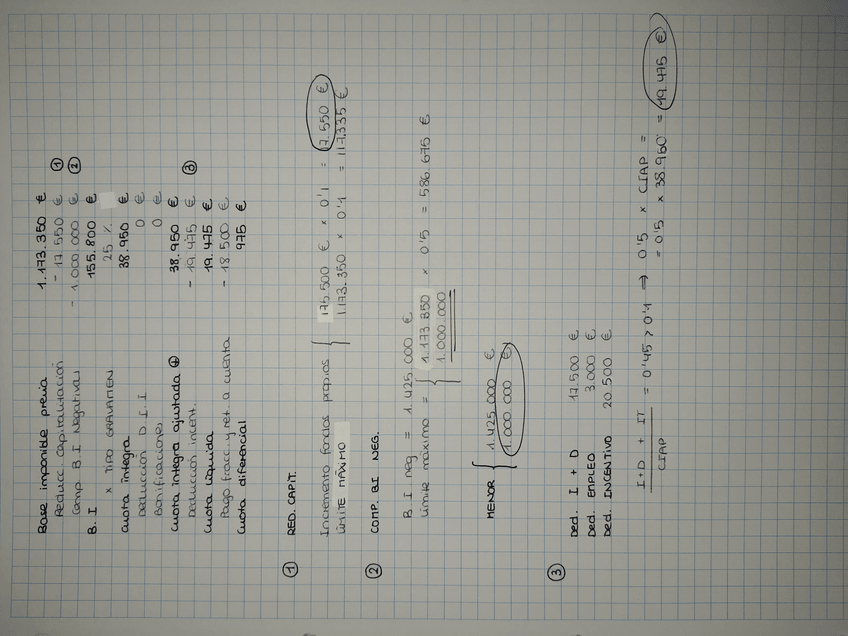 Base imponible previa 1.173.350 €
Reducc. capitalización - 17.550 € ①
Comp. B I Negativas - 1.000.000 € ②
B. I 155.800 €
x TIPO GRAVAMEN 25 %
Cuota íntegra 38.950 €
Deducción D. I. I 0 €
Bonificaciones 0 €
Cuota íntegra ajustada ⊕ 38.950 €
Deducción incent. - 19.475 € ③
Cuota líquida 19.475 €
Pago fracc. y ret. a cuenta - 18.500 €
Cuota diferencial 975 €
① RED. CAPIT.
Incremento fondos propios { 175.500 € x 0'1 = 17.550 €
LÍMITE MÁXIMO 1.173.350 x 0'1 = 117.335 €
② COMP. BI NEG.
B I neg = 1.425.000 €
Límite máximo = { 1.173.350 x 0'5 = 586.675 €
1.000.000
MENOR { 1.425.000 €
1.000.000 €
③ Ded. I + D 17.500 €
Ded. EMPLEO 3.000 €
Ded. INCENTIVO 20.500 €
I+D + IT = 0'45 > 0'1 ⇒ 0'5 x CIAP =
CIAP = 0'5 x 38.950 = 19.475 €